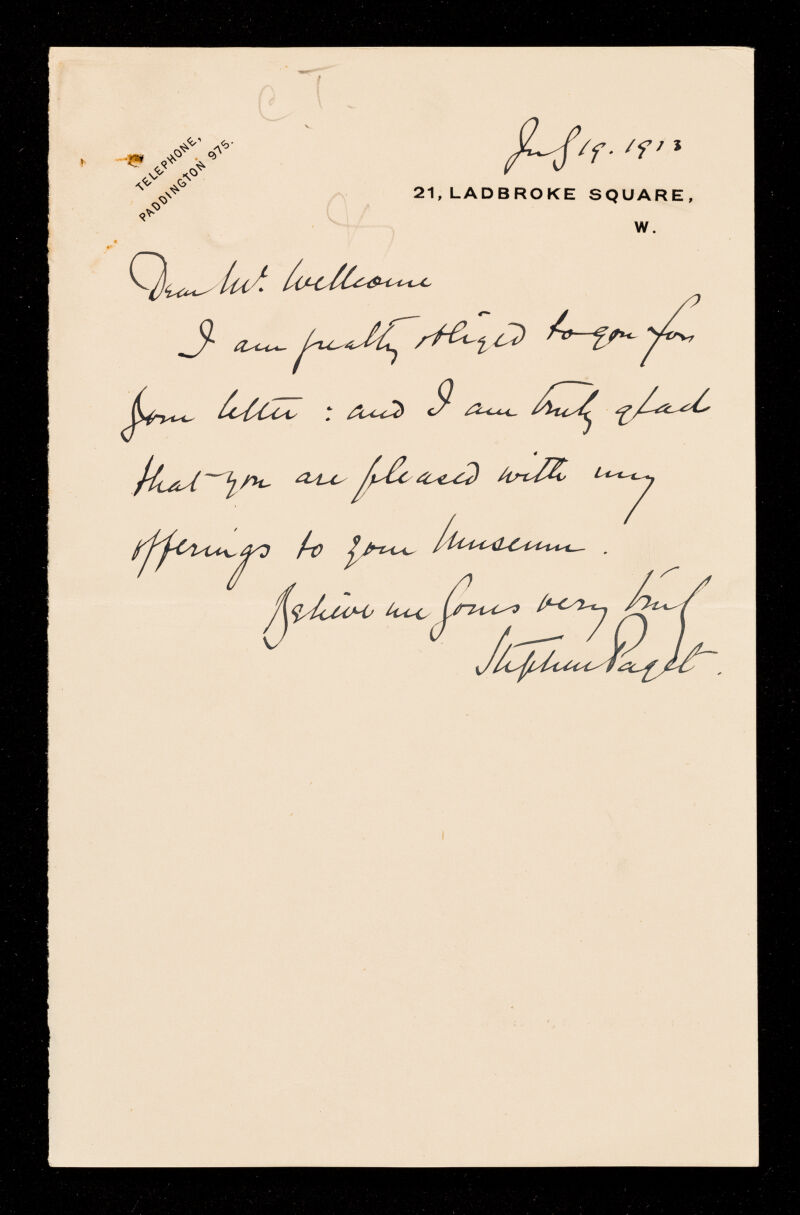 C.T.
TELEPHONE,
PADDINGTON 975.
July 19. 1913
21, LADBROKE SQUARE,
W.
Dear Mr. Wellcome
I am greatly obliged to you for
your letter : and I am truly glad
that you are pleased with my
offerings to your Museum.
Believe me yours very truly
Stephen Paget.